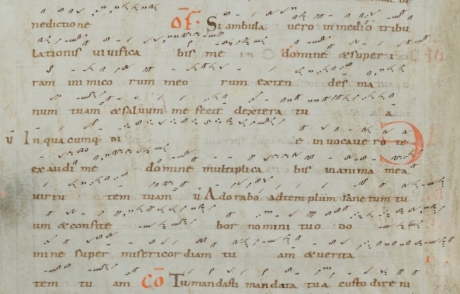 nedictione OF. Si ambula vero in medio tribu
lationis vivifica bis me domine & super
ram inimico rum meo rum exten des ma
num tuam & salvum me fecit dextera tu a
V In quacumq; di e invocavero te
exaudi me domine multiplica bis in anima mea
virtu tem tuam V Adorabo ad templum sanctum tu
um & confite bor nomini tuo do
mine super misericordiam tu am & verita
tem tu am CO Tu mandasti mandata tua custodire ni